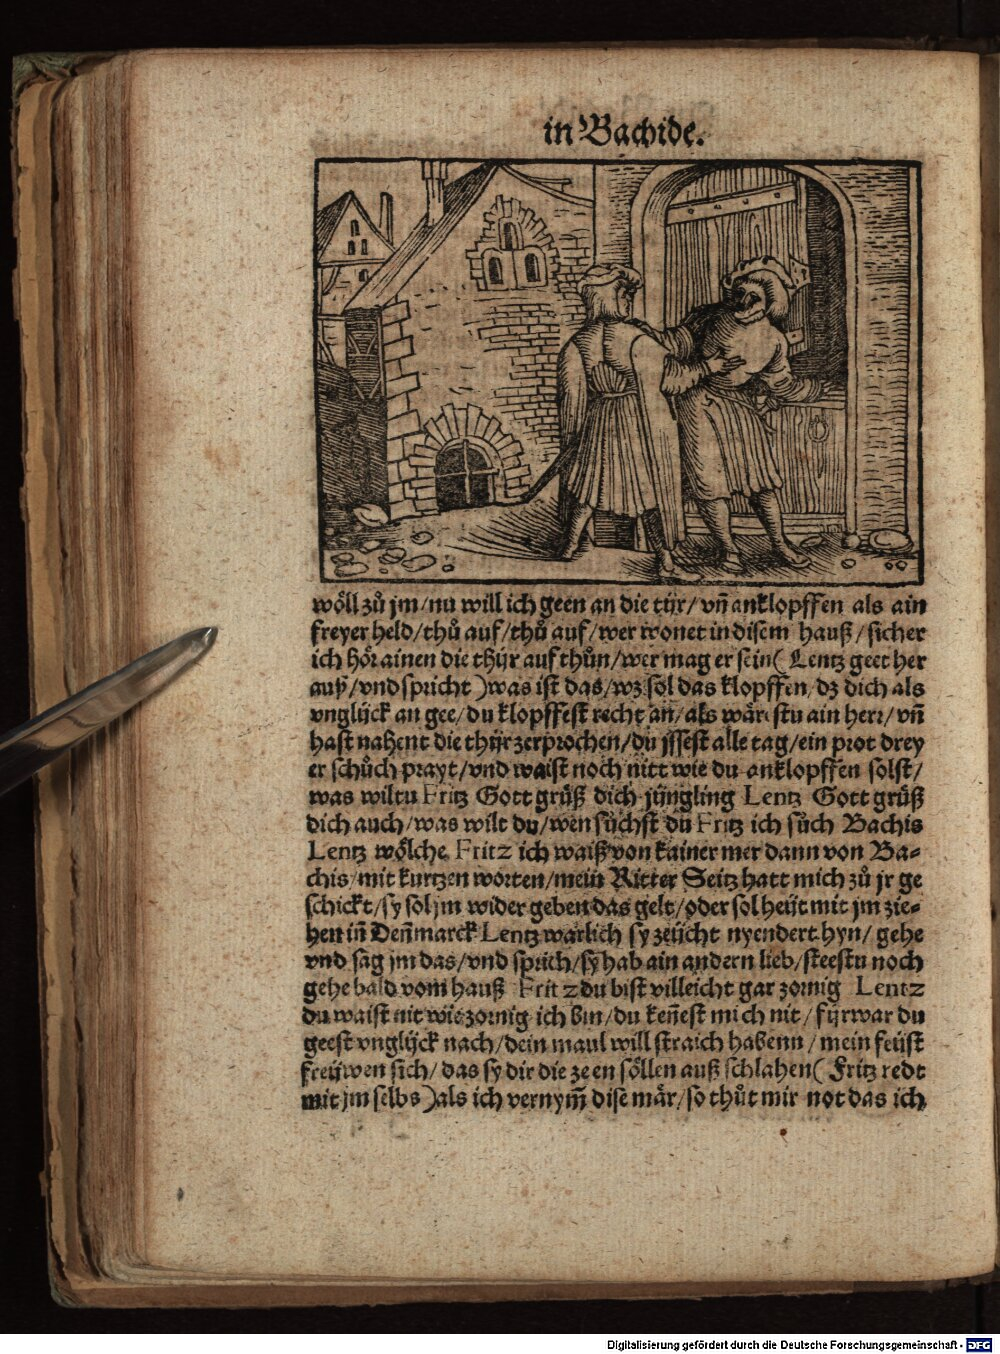 in Bachide.
wöll zů jm/nu will ich geen an die tür/ vñ anklopffen als ain
freyer held/thů auf/thů auf/wer wonet in disem hauß/sicher
ich hör ainen die thür auf thůn/wer mag er sein( Lentz geet her
auß/vnd spricht )was ist das/wz sol das klopffen/dz dich als
vnglück an gee/du klopffest recht an/als wärestu ain herr/vñ
hast nahent die thür zerprochen/du jssest alle tag/ein prot drey
er schůch prayt/vnd waist noch nitt wie du anklopffen solst/
was wiltu Fritz Gott grüß dich jüngling Lentz Gott grüß
dich auch/was wilt du/wen sůchst du Fritz ich sůch Bachis
Lentz wölche Fritz ich waiß von kainer mer dann von Ba-
chis/mit kurtzen worten/mein Ritter Seitz hatt mich zů jr ge
schickt/sy sol jm wider geben das gelt/oder sol heüt mit jm zie-
hen iñ Deñmarck Lentz warlich sy zeücht nyendert hyn/ gehe
vnd sag jm das/vnd sprich/sy hab ain andern lieb/steestu noch
gehe bald vom hauß Fritz du bist villeicht gar zornig Lentz
du waist nit wie zornig ich bin/du keñest mich nit/fürwar du
geest vnglück nach/dein maul will straich habenn/mein feüst
freüwen sich/das sy dir die zeen söllen auß schlahen( Fritz redt
mit jm selbs )als ich vernym̃ dise mär/so thůt mir not das ich
Digitalisierung gefördert durch die Deutsche Forschungsgemeinschaft - DFG